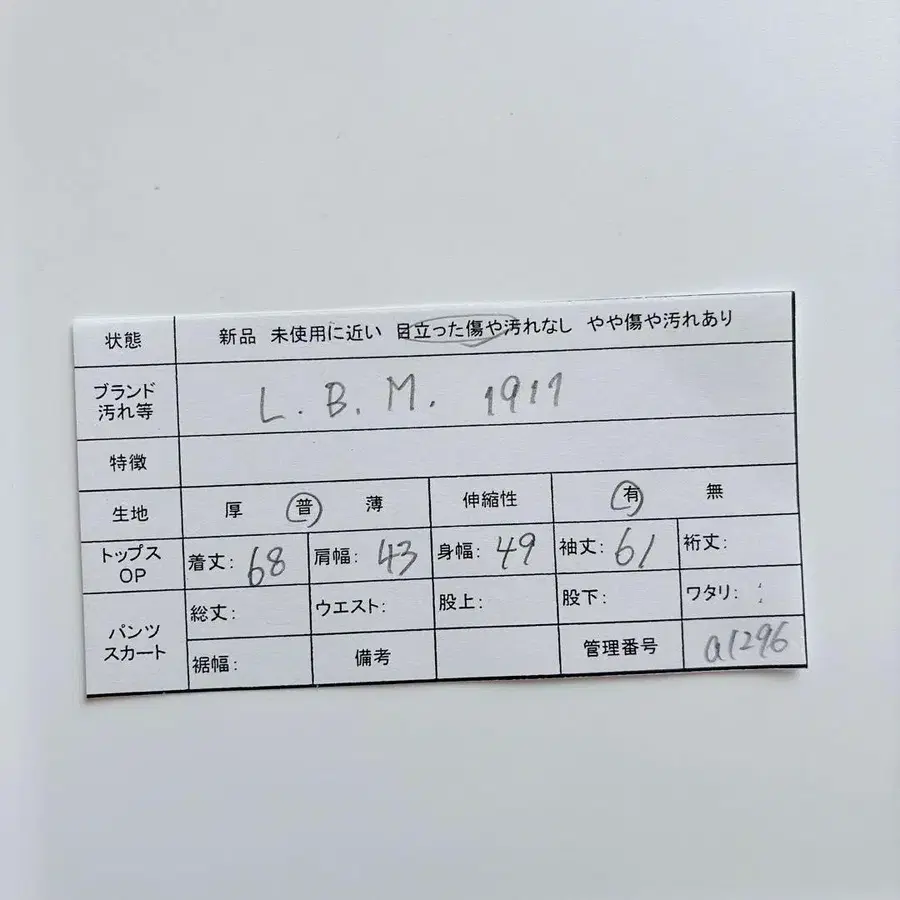 状態 新品 未使用に近い 目立った傷や汚れなし やや傷や汚れあり
ブランド
汚れ等 L.B.M. 1911
特徴
生地 厚 普 薄 伸縮性 有 無
トップス
OP 着丈: 68 肩幅: 43 身幅: 49 袖丈: 61 裄丈:
パンツ
スカート 総丈: ウエスト: 股上: 股下: ワタリ:
裾幅: 備考 管理番号 a1296